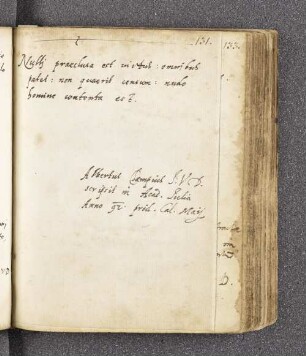 131. 133.
Nulli praeclusa est virtus: omnibus
patet: non quaerit censum: nudo
homine contenta est.
Albertus
scripsit in Acad. Julia
Anno prid. Cal. Maij
D.